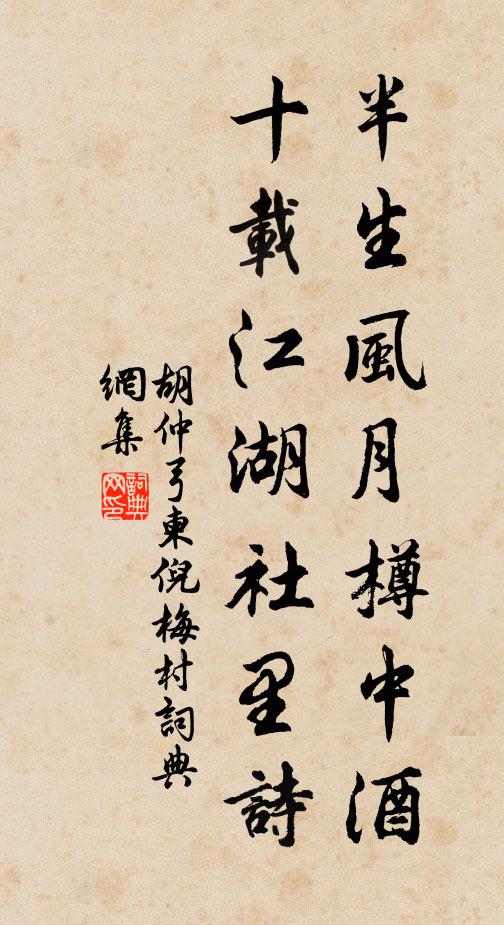 半生風月樽中酒
十載江湖社里詩
胡仲弓東倪梅村詞典
網集
詞典
网印